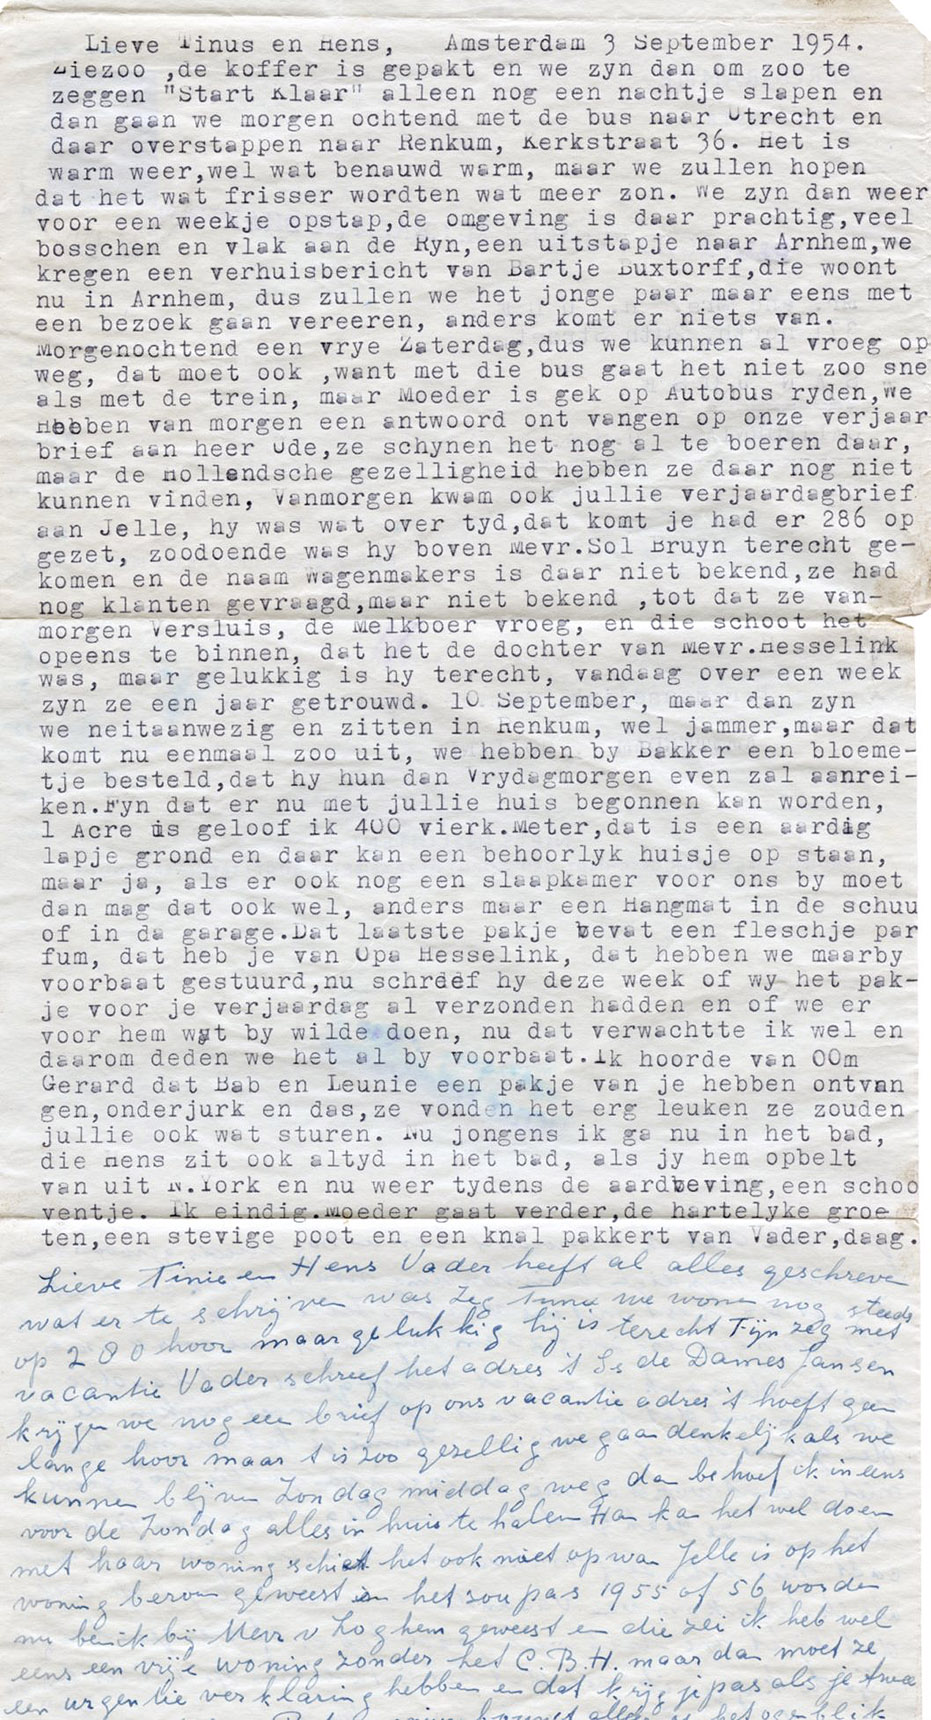 Lieve Tinus en Hens,   Amsterdam 3 September 1954.
Ziezoo ,de koffer is gepakt en we zyn dan om zoo te
zeggen "Start Klaar" alleen nog een nachtje slapen en
dan gaan we morgen ochtend met de bus naar Utrecht en
daar overstappen naar Renkum, Kerkstraat 36. Het is
warm weer,wel wat benauwd warm, maar we zullen hopen
dat het wat frisser wordten wat meer zon. We zyn dan weer
voor een weekje opstap,de omgeving is daar prachtig,veel
bosschen en vlak aan de Ryn,een uitstapje naar Arnhem,we
kregen een verhuisbericht van Bartje Buxtorff,die woont
nu in Arnhem, dus zullen we het jonge paar maar eens met
een bezoek gaan vereeren, anders komt er niets van.
Morgenochtend een vrye Zaterdag,dus we kunnen al vroeg op
weg, dat moet ook ,want met die bus gaat het niet zoo sne
als met de trein, maar Moeder is gek op Autobus ryden,we
Hebben van morgen een antwoord ont vangen op onze verjaar
brief aan heer Ude,ze schynen het nog al te boeren daar,
maar de Hollendsche gezelligheid hebben ze daar nog niet
kunnen vinden, Vanmorgen kwam ook jullie verjaardagbrief
aan Jelle, hy was wat over tyd,dat komt je had er 286 op
gezet, zoodoende was hy boven Mevr.Sol Bruyn terecht ge-
komen en de naam Wagenmakers is daar niet bekend,ze had
nog klanten gevraagd,maar niet bekend ,tot dat ze van-
morgen Versluis, de Melkboer vroeg, en die schoot het
opeens te binnen, dat het de dochter van Mevr.Hesselink
was, maar gelukkig is hy terecht, vandaag over een week
zyn ze een jaar getrouwd. 10 September, maar dan zyn
we neitaanwezig en zitten in Renkum, wel jammer,maar dat
komt nu eenmaal zoo uit, we hebben by Bakker een bloeme-
tje besteld,dat hy hun dan Vrydagmorgen even zal aanrei-
ken.Fyn dat er nu met jullie huis begonnen kan worden,
1 Acre is geloof ik 400 vierk.Meter,dat is een aardig
lapje grond en daar kan een behoorlyk huisje op staan,
maar ja, als er ook nog een slaapkamer voor ons by moet
dan mag dat ook wel, anders maar een Hangmat in de schuu
of in de garage.Dat laatste pakje bevat een fleschje par
fum, dat heb je van Opa Hesselink, dat hebben we maarby
voorbaat gestuurd,nu schreef hy deze week of wy het pak-
je voor je verjaardag al verzonden hadden en of we er
voor hem wat by wilde doen, nu dat verwachtte ik wel en
daarom deden we het al by voorbaat.Ik hoorde van OOm
Gerard dat Bab en Leunie een pakje van je hebben ontvan
gen,onderjurk en das,ze vonden het erg leuken ze zouden
jullie ook wat sturen. Nu jongens ik ga nu in het bad,
die Hens zit ook altyd in het bad, als jy hem opbelt
van uit N.York en nu weer tydens de aardbeving,een schoo
ventje. Ik eindig.Moeder gaat verder,de hartelyke groe
ten,een stevige poot en een knal pakkert van Vader,daag.
Lieve Tinie en Hens Vader heeft al alles geschreve
wat er te schrijven was Zeg Tinie we wone nog steeds
op 280 hoor maar gelukkig hij is terecht Fijn zeg met
vacantie Vader schreef het adres 't Is de Dames Jansen
krijgen we nog een brief op ons vacantie adres 't hoeft geen
lange hoor maar t is zoo gezellig we gaan denkelijk als we
kunnen blijven Zondag middag weg dan behoef ik ineens
voor de Zondag alles in huis te halen Han kan het wel doen
met haar woning schiet het ook niet op wan Jelle is op het
woning berou geweest en het sou pas 1955 of 56 worden
nu ben ik bij Mevr v Loghem geweest en die zei ik heb wel
eens een vrije woning zonder het C.B.H. maar dan moet ze
een urgentie verklaring hebben en dat krijg je pas als je twee